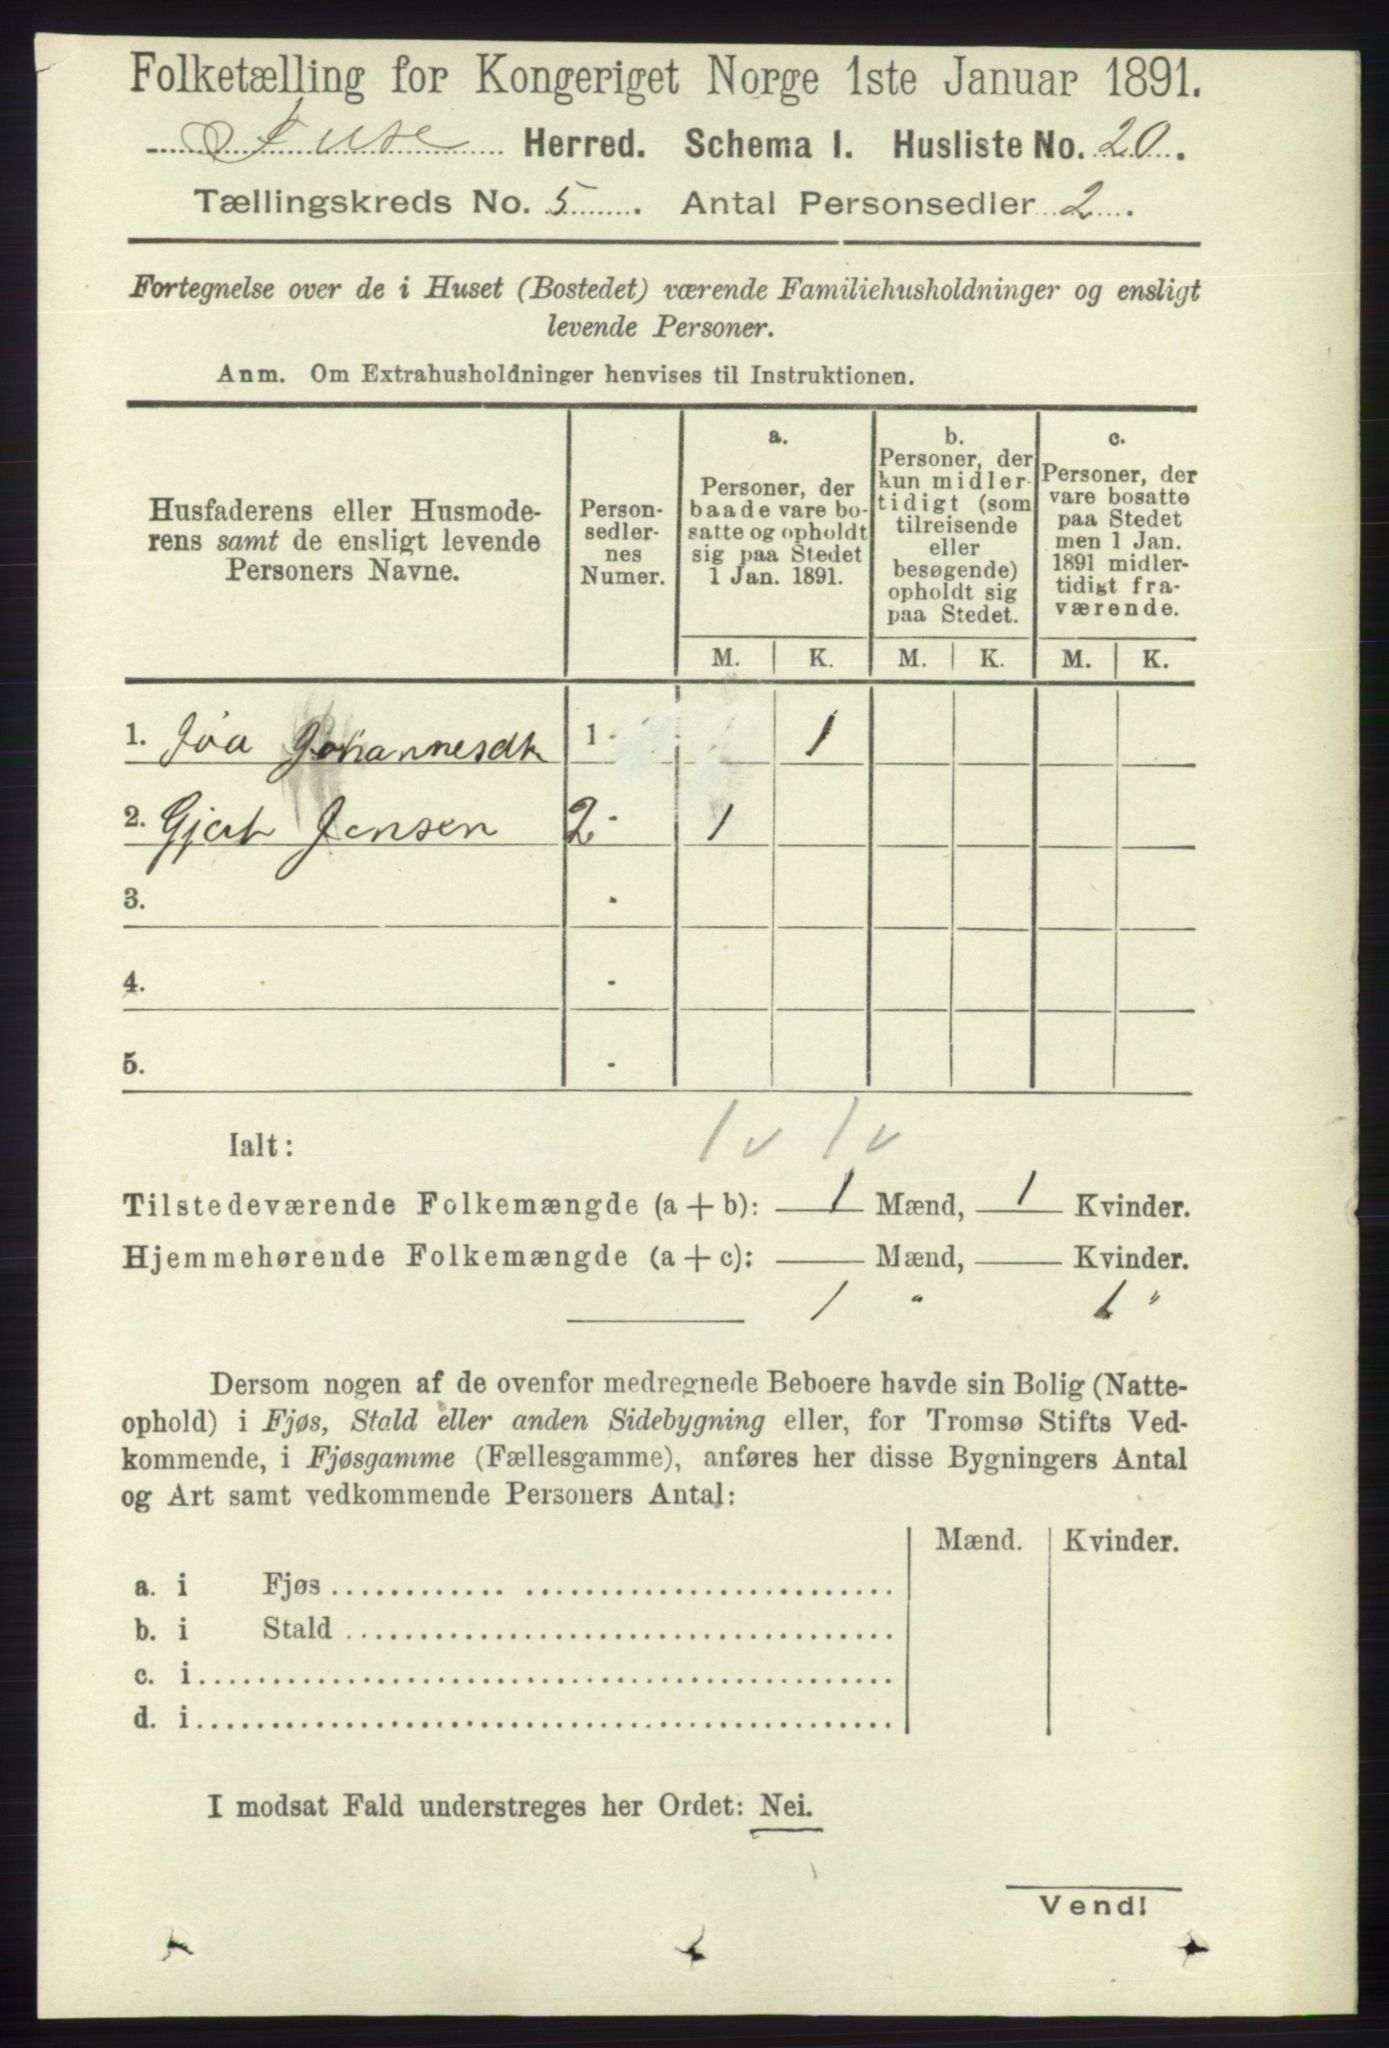 Folketælling for Kongeriget Norge 1ste Januar 1891.
Fuse Herred. Schema I. Husliste No. 20.
Tællingskreds No. 5. Antal Personsedler 2.
Fortegnelse over de i Huset (Bostedet) værende Familiehusholdninger og ensligt
levende Personer.
Anm. Om Extrahusholdninger henvises til Instruktionen.
Husfaderens eller Husmode-
rens samt de ensligt levende
Personers Navne.
Person-
sedler-
nes
Numer.
a.
Personer, der
baade vare bo-
satte og opholdt
sig paa Stedet
1 Jan. 1891.
b.
Personer, der
kun midler-
tidigt (som
tilreisende
eller
besøgende)
opholdt sig
paa Stedet.
c.
Personer, der
vare bosatte
paa Stedet
men 1 Jan.
1891 midler-
tidigt fra-
værende.
M. K. M. K. M. K.
1. Johannesdtr 1 1
2. Gjert Jensen 2 1
3.
4.
5.
1 v 1 v
Ialt:
Tilstedeværende Folkemængde (a + b): 1 Mænd, 1 Kvinder.
Hjemmehørende Folkemængde (a + c): Mænd, Kvinder.
1 " 1 "
Dersom nogen af de ovenfor medregnede Beboere havde sin Bolig (Natte-
ophold) i Fjøs, Stald eller anden Sidebygning eller, for Tromsø Stifts Ved-
kommende, i Fjøsgamme (Fællesgamme), anføres her disse Bygningers Antal
og Art samt vedkommende Personers Antal:
Mænd. Kvinder.
a. i Fjøs
b. i Stald
c. i
d. i
I modsat Fald understreges her Ordet: Nei.
Vend!